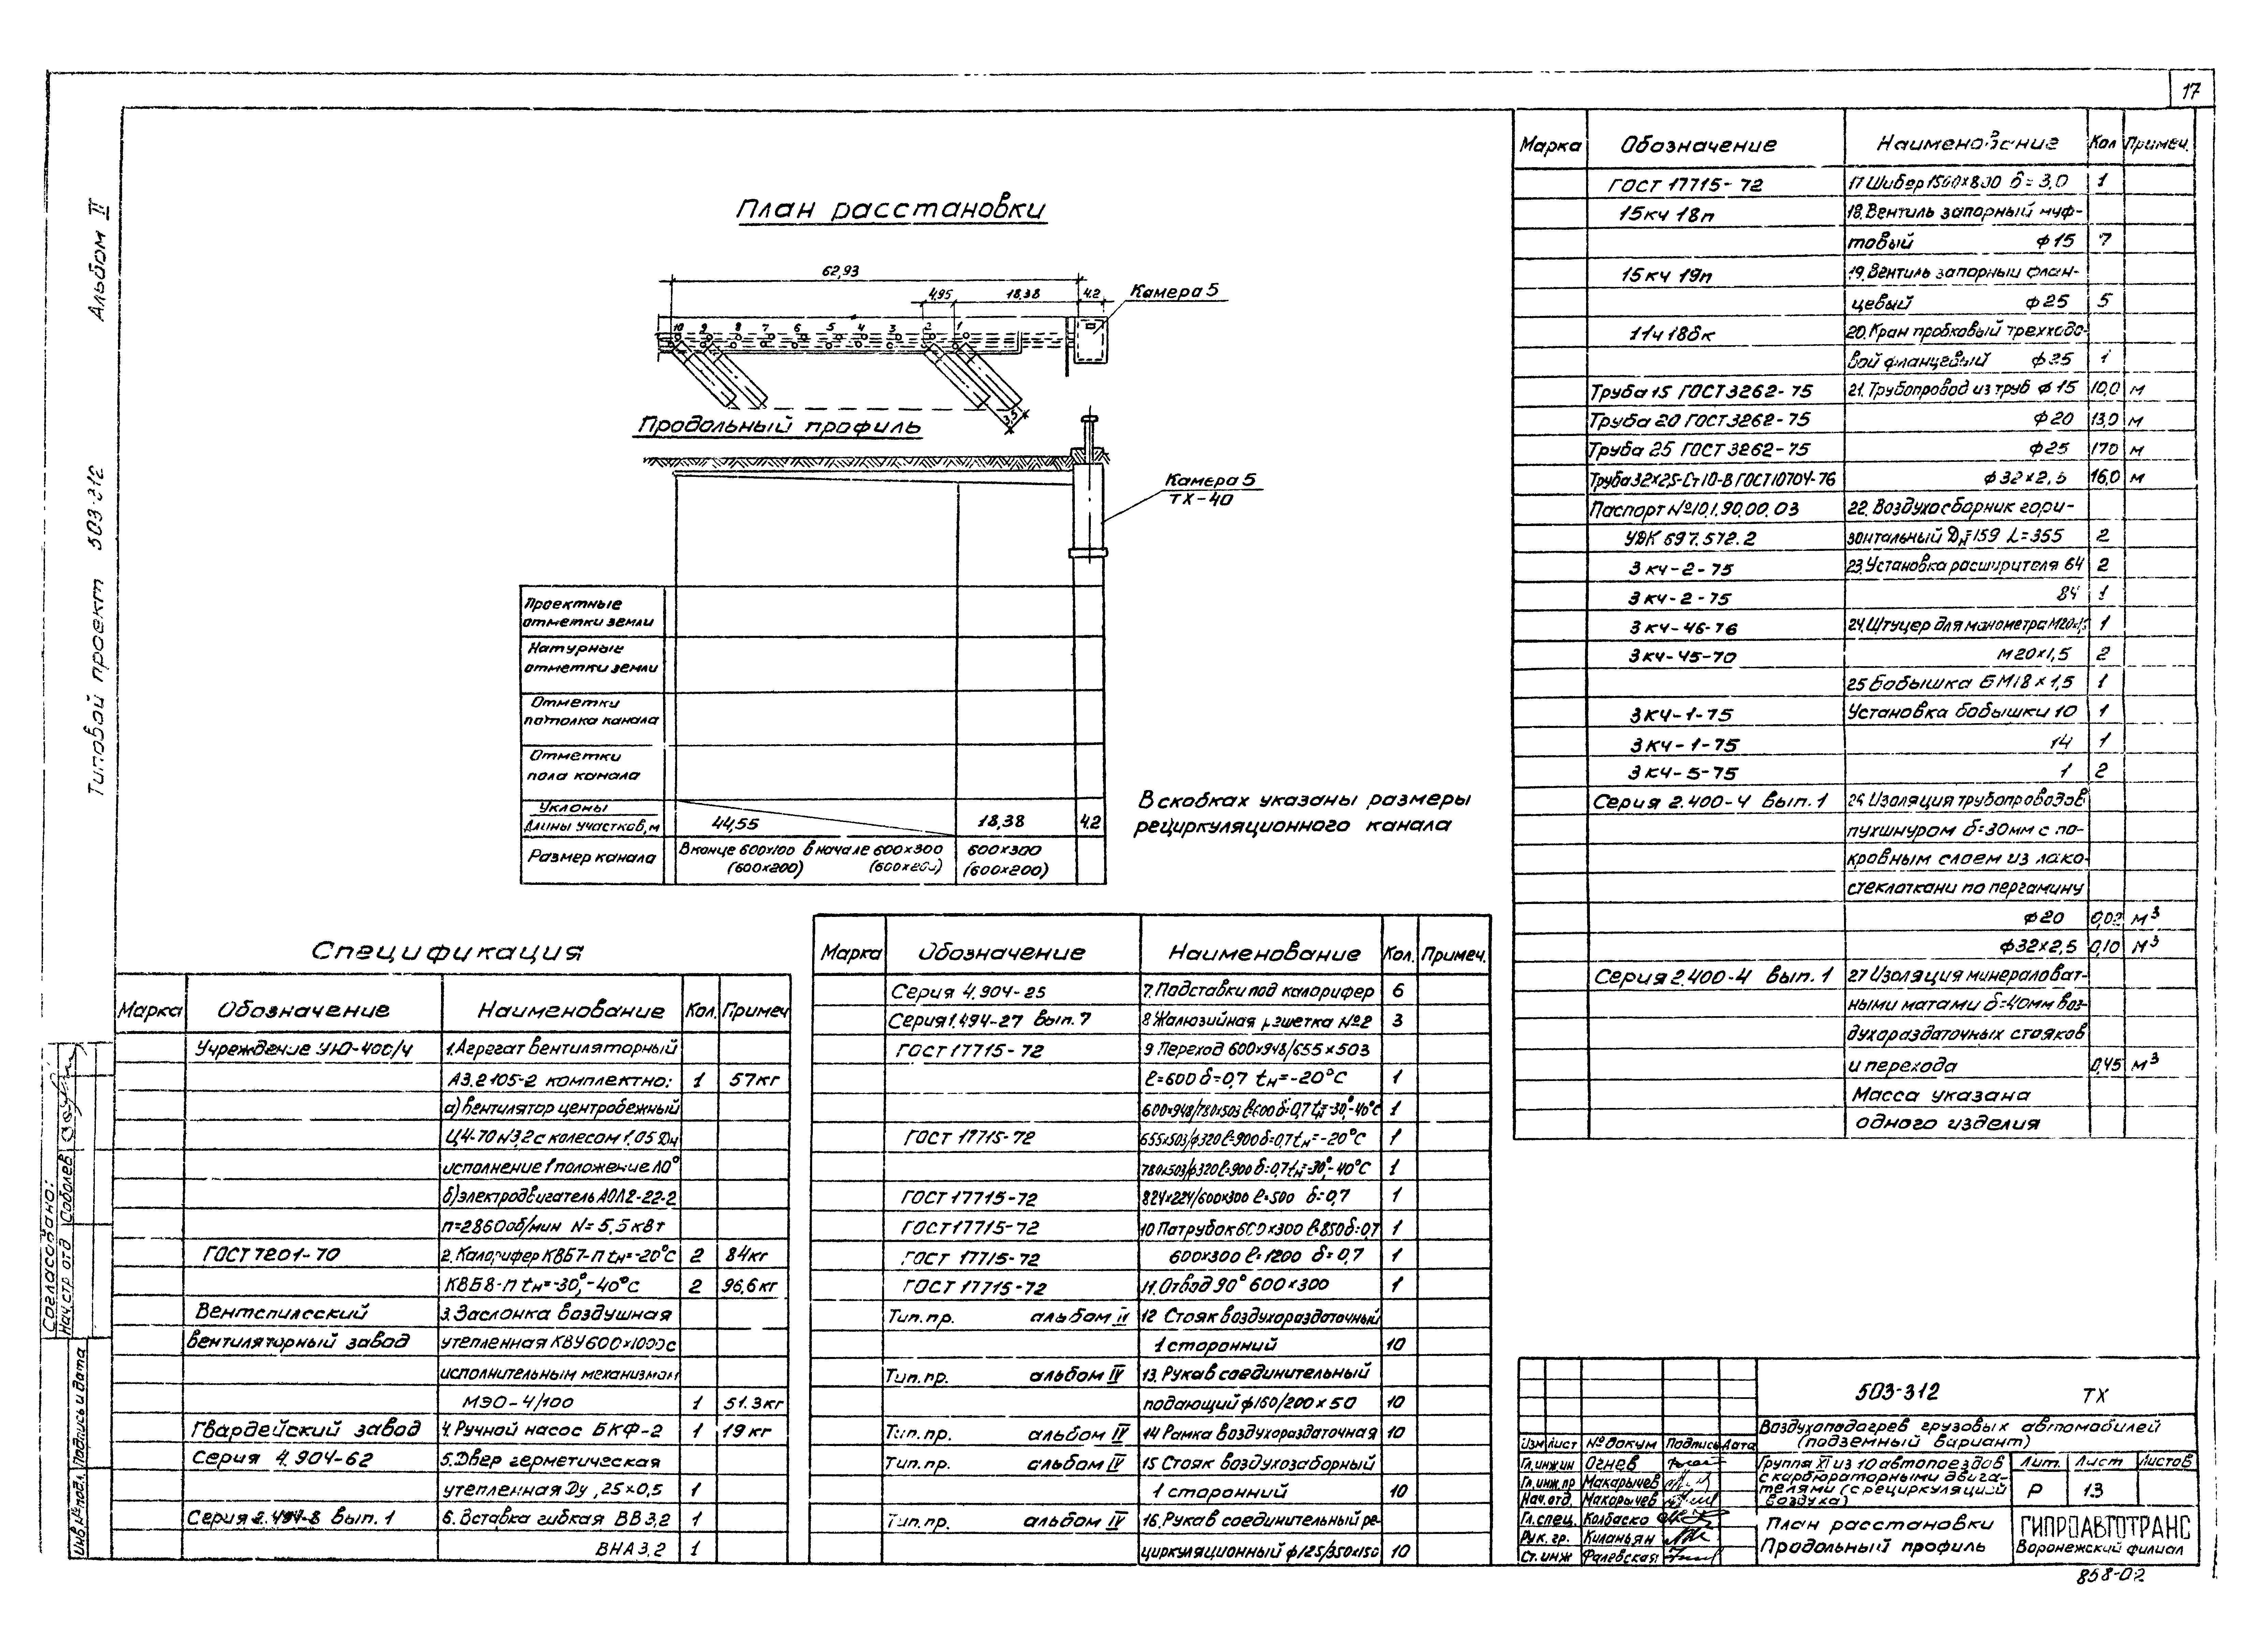 17
Альбом II
Типовой проект 503-312
План расстановки
62,93
4,95
18,38
4.2
Камера 5
10 9 8 7 6 5 4 3 2 1
3,5
Продольный профиль
Камера 5
ТХ-40
Проектные
отметки земли
Натурные
отметки земли
Отметки
потолка канала
Отметки
пола канала
Уклоны
Длины участков, м 44,55 18,38 4.2
Размер канала В конце 600х100 в начале 600×300 600×300
(600×200) (600×200) (600×200)
В скобках указаны размеры
рециркуляционного канала
Спецификация
Марка Обозначение Наименование Кол. Примеч
Учреждение УЮ-400/4 1. Агрегат вентиляторный
А3.2 105-2 комплектно: 1 57кг
а) вентилятор центробежный
Ц4-70 №3,2 с колесом 1,05 Дн
исполнение 1 положение Л0°
б) электродвигатель АОЛ2-22-2
n=2860 об/мин N=5,5 квт
ГОСТ 7201-70 2. Калорифер КВБ7-П tн=-20°С 2 84кг
КВБ8-П tн=-30°,-40°С 2 96,6кг
Вентспилсский 3. Заслонка воздушная
вентиляторный завод утепленная КВУ 600×1000 с
исполнительным механизмом
МЭО-4/100 1 51.3кг
Гвардейский завод 4. Ручной насос БКФ-2 1 19 кг
Серия 4.904-62 5. Двер герметическая
утепленная Ду 1,25×0,5 1
Серия 2.494-8 вып. 1 6. Вставка гибкая ВВ 3,2 1
ВНА 3,2 1
Марка Обозначение Наименование Кол. Примеч.
Серия 4.904-25 7. Подставки под калорифер 6
Серия 1.494-27 вып. 7 8 Жалюзийная решетка №2 3
ГОСТ 17715-72 9 Переход 600×948/655×503
ℓ=600 δ=0,7 tн=-20°С 1
600×948/780×503 ℓ=600 δ=0,7 tн=-30°,-40°С 1
ГОСТ 17715-72 655×503/ф320 ℓ=900 δ=0,7 tн=-20°С 1
780×503/ф320 ℓ=900 δ=0,7 tн=-30°,-40°С 1
ГОСТ 17715-72 824×224/600×300 ℓ=500 δ=0,7 1
ГОСТ 17715-72 10 Патрубок 600×300 ℓ=850 δ=0,7 1
ГОСТ 17715-72 600×300 ℓ=1200 δ=0,7 1
ГОСТ 17715-72 11. Отвод 90° 600×300 1
Тип. пр. альбом IV 12 Стояк воздухораздаточный
1 сторонний 10
Тип. пр. альбом IV 13. Рукав соединительный
подающий ф160/200×50 10
Тип. пр. альбом IV 14 Рамка воздухораздаточная 10
Тип. пр. альбом IV 15 Стояк воздухозаборный
1 сторонний 10
Тип. пр. альбом IV 16. Рукав соединительный ре-
циркуляционный ф125/350×150 10
Марка Обозначение Наименование Кол Примеч.
ГОСТ 17715-72 17 Шибер 1500×800 δ=3,0 1
15кч 18п 18. Вентиль запорный муф-
товый ф15 7
15кч 19п 19. Вентиль запорный флан-
цевый ф25 5
11ч 18бк 20. Кран пробковый трехходо-
вой фланцевый ф25 1
Труба 15 ГОСТ 3262-75 21. Трубопровод из труб ф15 10,0 м
Труба 20 ГОСТ 3262-75 ф20 13,0 м
Труба 25 ГОСТ 3262-75 ф25 170 м
Труба 32×25-Ст10-В ГОСТ 10704-76 ф32×2,5 16,0 м
Паспорт №10.1.90.00.03 22. Воздухосборник гори-
УДК 697.572.2 зонтальный Dн=159 L=355 2
3 кч-2-75 23. Установка расширителя 64 2
3 кч-2-75 84 1
3 кч-46-76 24. Штуцер для манометра М20×1,5 1
3 кч-45-70 М20×1,5 2
25 Бобышка БМ18×1,5 1
3 кч-1-75 Установка бобышки 10 1
3 кч-1-75 14 1
3 кч-5-75 1 2
Серия 2.400-4 вып. 1 26 Изоляция трубопроводов
пухшнуром δ=30мм с по-
кровным слоем из лако-
стеклоткани по пергамину
ф20 0,02 м³
ф32×2,5 0,10 м³
Серия 2.400-4 вып. 1 27 Изоляция минераловат-
ными матами δ=40мм воз-
духораздаточных стояков
и перехода 0,45 м³
Масса указана
одного изделия
Согласовано:
Нач. стр. отд Соболев
Подпись и дата
Инв № подл.
503-312 ТХ
Воздухоподогрев грузовых автомобилей
(подземный вариант)
Изм Лист № докум Подпись Дата
Гл. инж ин Огнев
Гл. инж. пр Макарычев
Нач. отд. Макарычев
Гл. спец. Колбаско
Рук. гр. Киланьян
Ст. инж Фалевская
Группа XI из 10 автопоездов
с карбюраторными двига-
телями (с рециркуляцией
воздуха)
Лит. Лист Листов
Р 13
План расстановки
Продольный профиль
ГИПРОАВТОТРАНС
Воронежский филиал
858-02